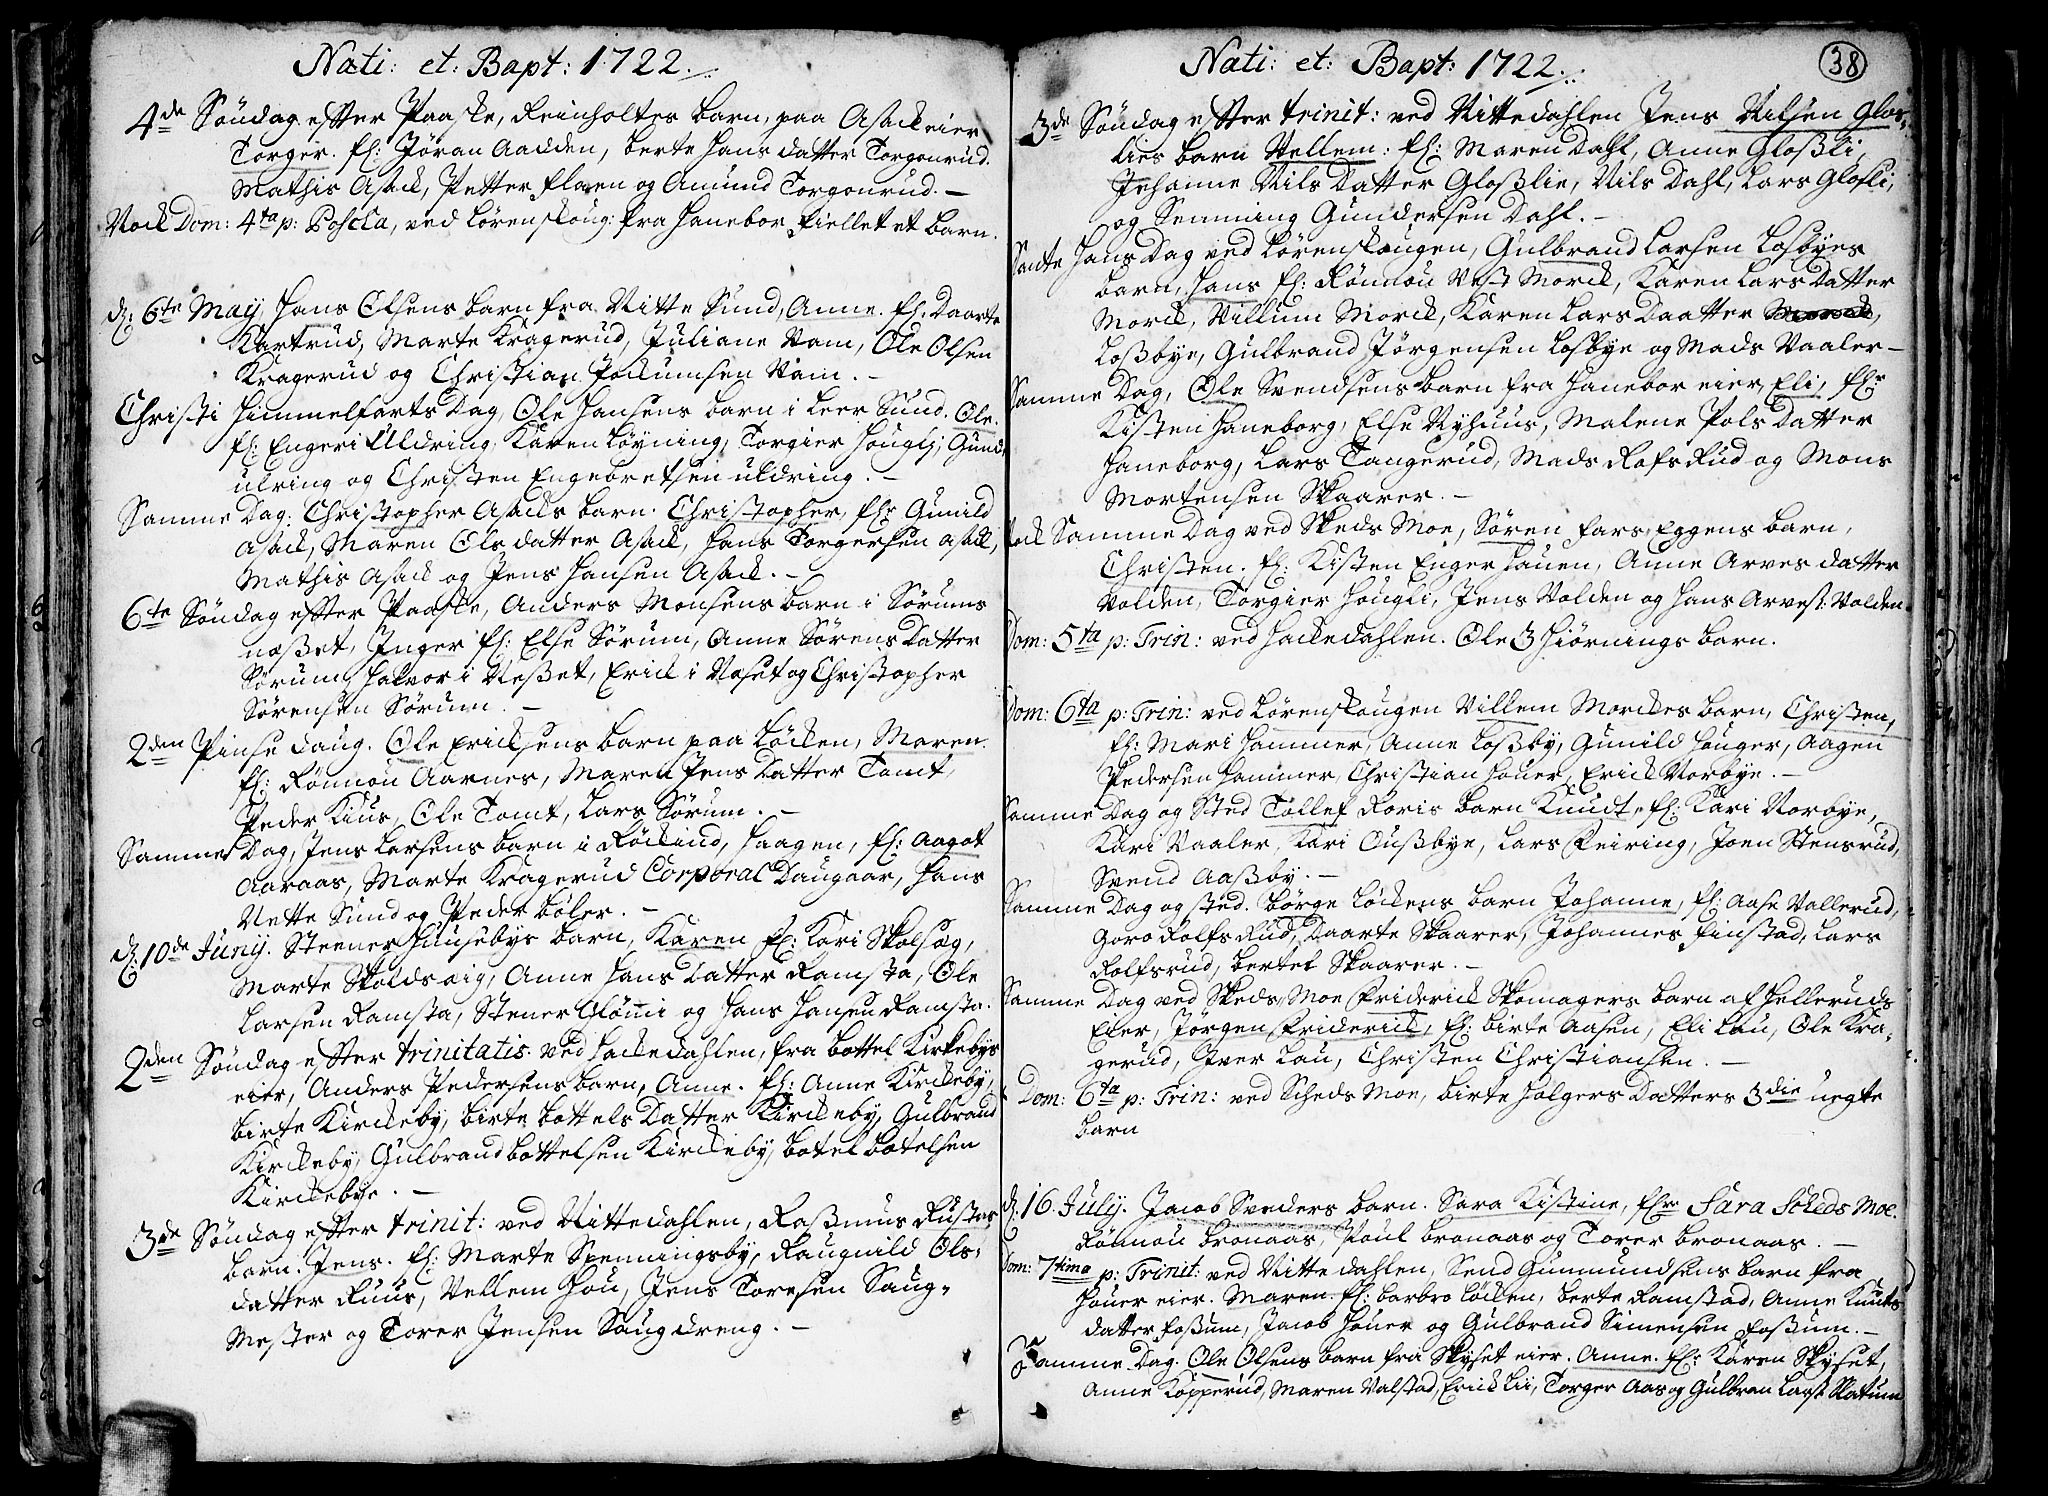 Nati: et: Bapt: 1722.
4de Söndag efter Paaske, Reinholtes barn, paa Asack eier
Torger. f: Jöran Aadden, berte Hans datter Torgonrud.
Mathis Asack, Petter floen og Amund Torgonrud. –
Nock Dom: 4ta p: Poscha, ved Lörenskoug: fra Hanebor fiellet et barn.
d: 6te May, Hans Olsens barn fra Nitte Sund, Anne. f: Daarte
Kartrud, Marte Kragerud, Juliane Nam, Ole Olsen
Kragerud og Christian Jockumsen Nam. –
Christi Himmelfarts Dag, Ole Hansens barn i Leer Sund. Ole.
f: Engeri Uldring, Karen Lövning, Torgier Hougli, Gund:
ulring og Christen Engebretsen uldring. –
Samme Dag: Christopher Asacks barn. Christopher, f: Gunild
Asack, Maren Ols datter Asack, Hans Torgersen Asack,
Mathis Asack og Jens Hansen Asack. –
6te Söndag efter Paaske, Anders Monsens barn i Sörums
næsset, Inger f: Else Sörum, Anne Sörens Datter
Sörum, Halvor i Nesset, Erick i Neset og Christopher
Sörensen Sörum. –
2den Pinse daug. Ole Ericksens barn paa Löcken, Maren.
f: Rönnou Aarnes, Maren Jens Datter Tomt,
Peder Kius, Ole Tomt, Lars Sörum. –
Samme Dag, Jens Larsens barn i Röckiud, Haagen, f: Aagot
Aaraas, Marte Kragerud Corporal Daugaar, Hans
Nette Sund og Peder böler. –
d: 10de Junij. Steener Huusebys barn, Karen f: Kari Skolsæg,
Marte Skoldsæig, Anne Hans Datter Ramsta, Ole
Larsen Ramsta, Stener Glömi og Hans Hansen Ramsta.
2den Söndag efter trinitatis. ved Hackedahlen, fra bottel Kirkebys
eier, Anders Pedersens barn, Anne. f: Anne Kirckeby,
birte Kirckeby, birte bottels Datter Kirckeby, Gulbrand
Kirckeby, Gulbrand bottelsen Kirckeby, botel botelsen
Kirckebye. –
3de Söndag efter trinit: ved Nittedahlen, Rasmus Rustes
barn. Jens. f: Marte Spenningsby, Raugnild Ols-
datter Ruus, Vellem Hou, Jens Toresen Saug-
Mester og Torer Jensen Saugdreng. –
Nati: et: Bapt: 1722.
38
3de Söndag efter trinit: ved Nittedahlen Jens Nilsen Glos-
lies barn Vellem: f: Maren Dahl, Anne Glossli,
Johanne Nils Datter Glosslie, Nils Dahl, Lars Glosli,
og Senning Gundersen Dahl. –
Sante Hans Dag ved Lörenskougen, Gulbrand Larsen Losbyes
barn, Hans f: Rönnou Næst Morck, Karen Lars Datter
Morck, Villum Morck, Karen Lars Daatter
Lossbye, Gulbrand Jörgensen Losbye og Mads Vaaler –
Samme Dag, Ole Svendsens barn fra Hanebor eier, Eli, f:
Kisten Haneborg, Else Nyhuus, Malene Pols Datter
Haneborg, Lars Tangerud, Mads Rofs Rud og Mons
Mortensen Skaarer. –
Nock Samme Dag ved Skeds Moe, Sören fars Eggens barn,
Christen. f: Kisten Enger Hauen, Anne Arves datter
Volden, Torgier Hougli, Jens Volden og Hans Arves: Volden.
Dom: 5ta p: Trin: ved Hackedahlen. Ole 3 Hiörnings barn.
Dom: 6ta p: Trin: ved Lörenskougen Villem Morckes barn, Christen,
f: Mari Hammer, Anne Lossby, Gunild Houger, Aagen
Pedersen Hammer, Christian Houer, Erick Norbye. –
Samme Dag og Sted Tollef Roris barn Knudt, f: Kari Norbye,
Kari Vaaler, Kari Oussbye, Lars Feiring, Joen Stensrud,
Svend Aassby. –
Samme Dag og sted. börge Löckens barn Johanne, f: Aase Vallerud,
Goro Rolfs Rud, Daarte Skaarer, Johannes Finstad, Lars
Rolfsrud, bertel Skaarer. –
Samme Dag ved Skeds Moe Friderick Skomagers barn af Helleruds
Eier, Jörgen Friderick, f: birte Aasen, Eli Lau, Ole Kra-
gerud, Iver Lau, Christen Christiansen. –
Dom: 6ta p: Trin: ved Scheds Moe, birte Holgers Datters 3die uegte
barn
d: 16 July. Jacob Sveders barn. Sara Kistine, f: Sara Scheds Moe.
Rönnou bronaas, Poul bronaas og Torer bronaas. –
Dom: 7tima p: Trinit: ved Nittedahlen, Send Gunmundsens barn fra
Houer eier. Maren. f: barbro Löcken, berte Ramstad, Anne Knuts
datter Fossum, Jacob Houer og Gulbrand Simensen Fossum. –
Samme Dag. Ole Olsens barn fra Skyset eier. Anne. f: Karen Skyset,
Anne Kopperud, Maren Valstad, Erick Lii, Torger Aas og Gulbran Lars: Skatum